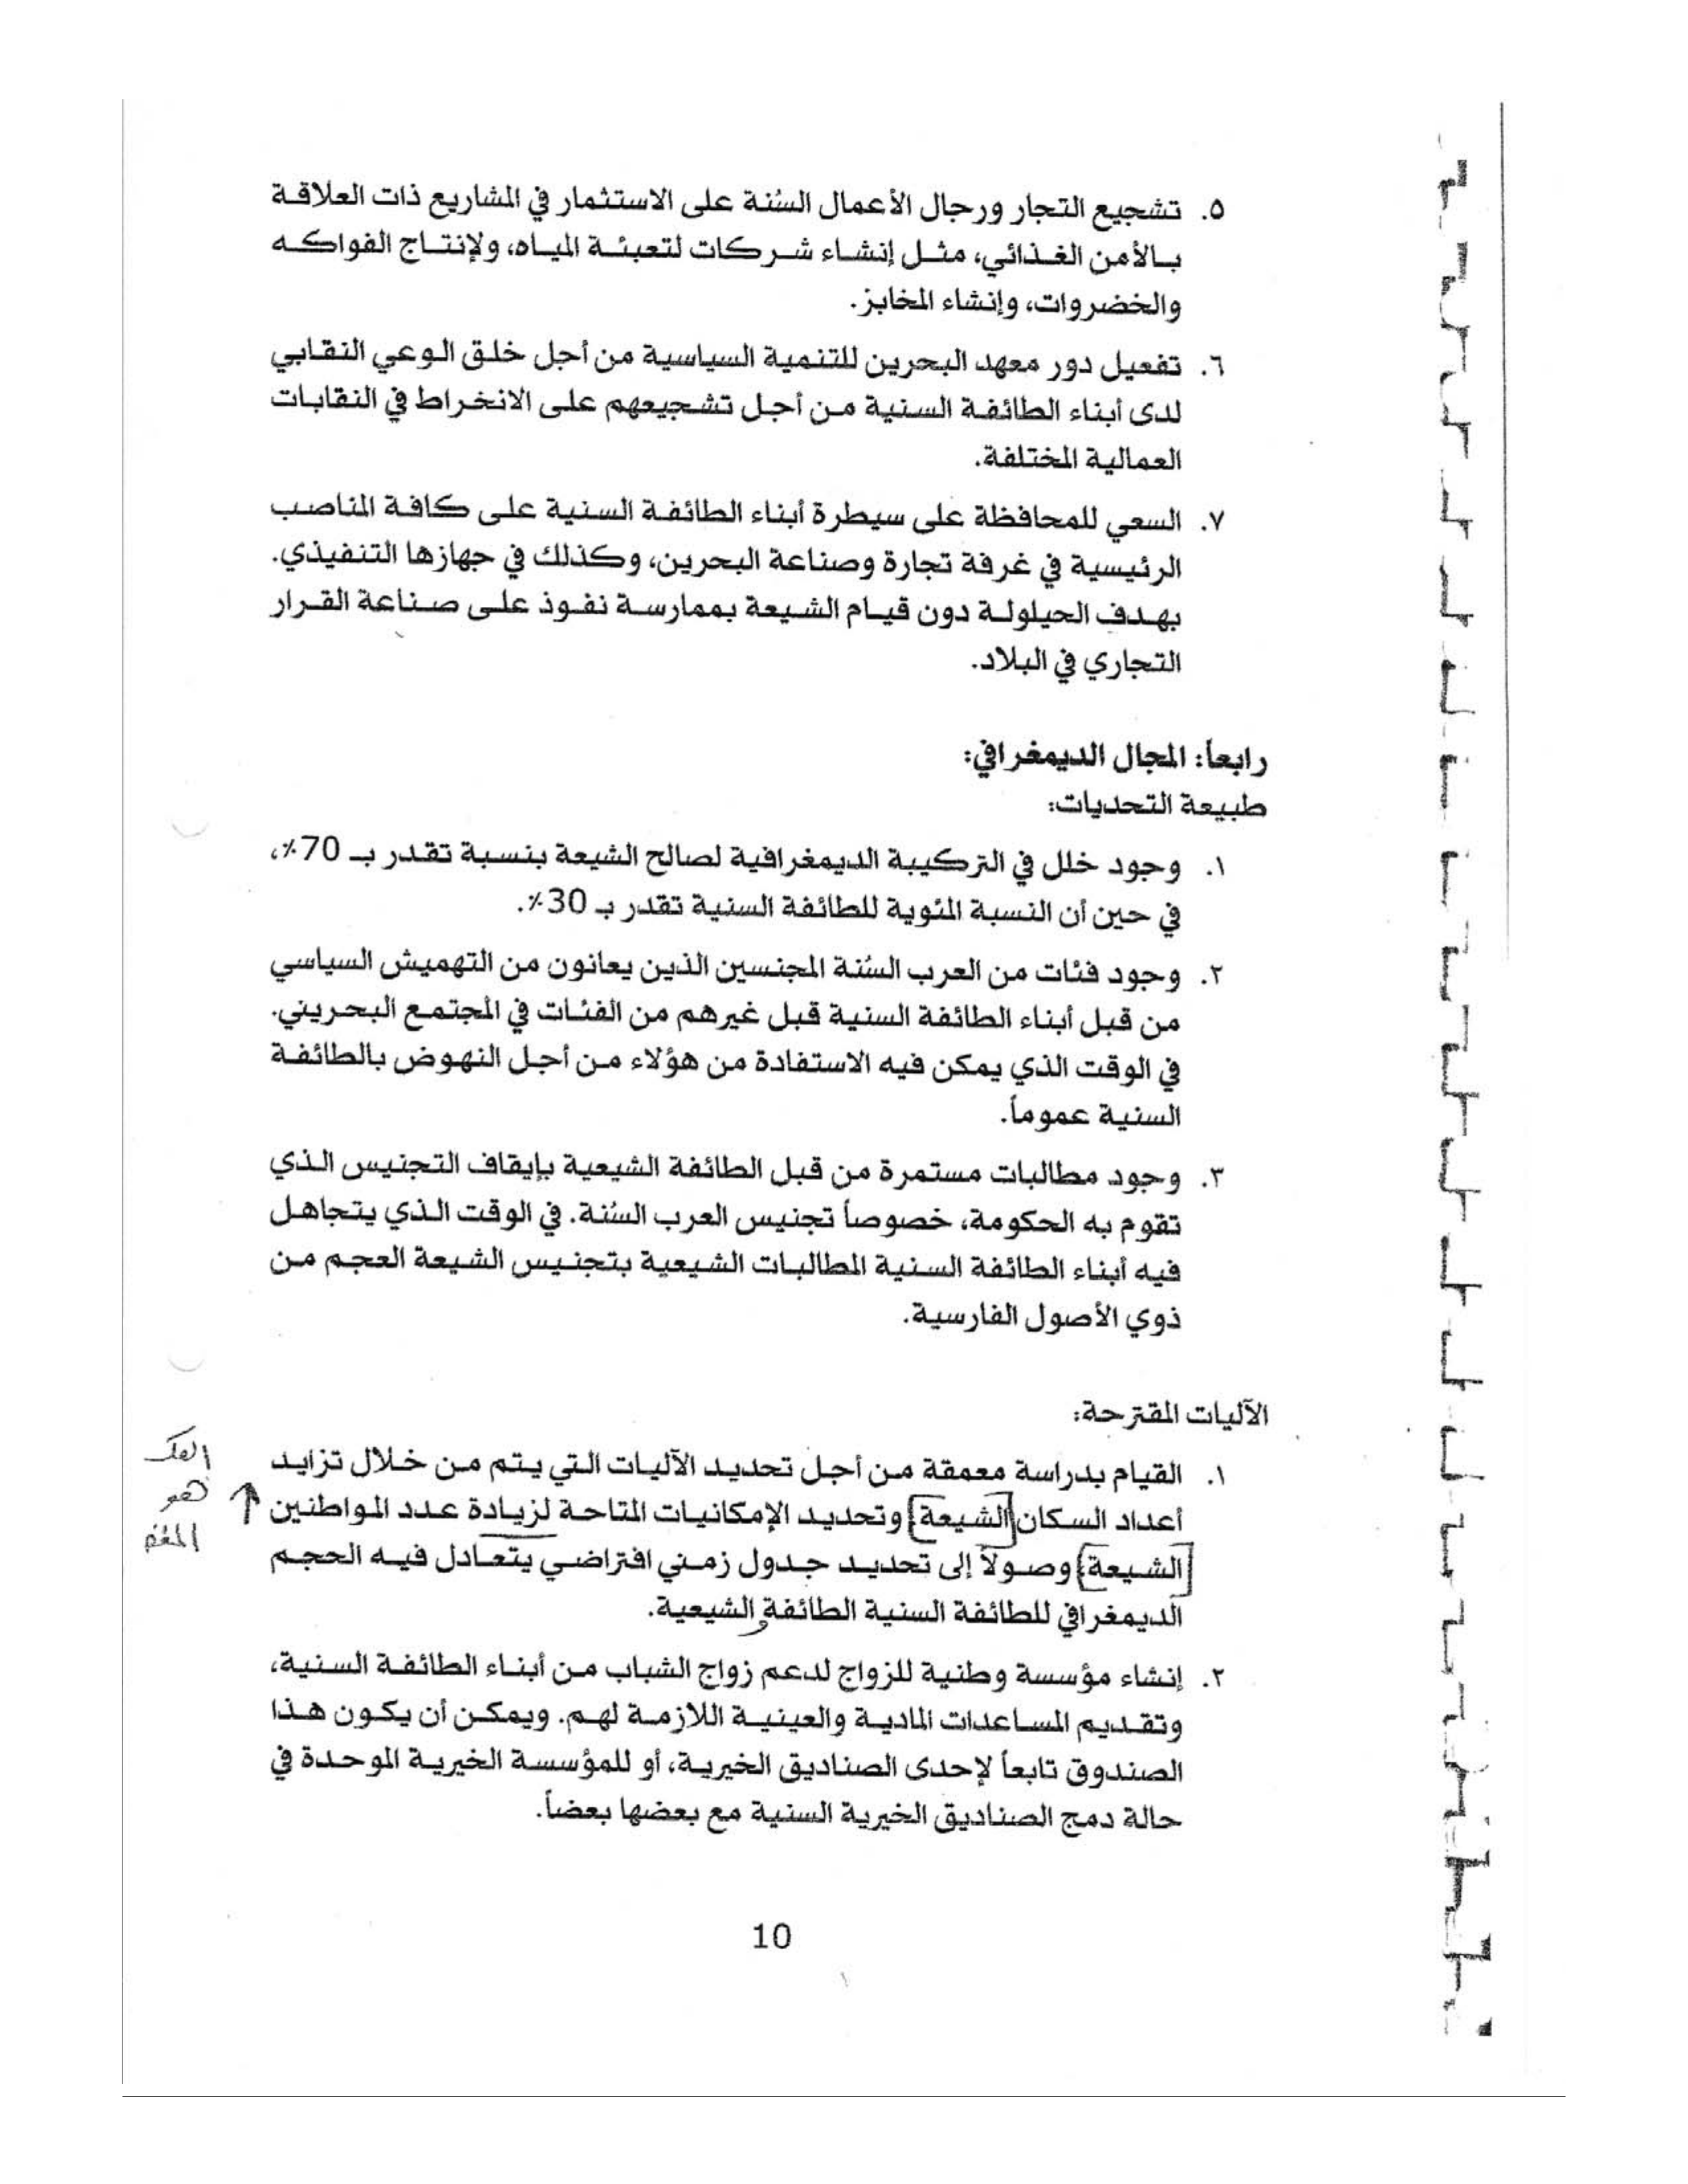 ٥. تشجيع التجار ورجال الأعمال السُنة على الاستثمار في المشاريع ذات العلاقة
بالأمن الغذائي، مثل إنشاء شركات لتعبئة المياه، ولإنتاج الفواكه
والخضروات، وإنشاء المخابز.
٦. تفعيل دور معهد البحرين للتنمية السياسية من أجل خلق الوعي النقابي
لدى أبناء الطائفة السنية من أجل تشجيعهم على الانخراط في النقابات
العمالية المختلفة.
٧. السعي للمحافظة على سيطرة أبناء الطائفة السنية على كافة المناصب
الرئيسية في غرفة تجارة وصناعة البحرين، وكذلك في جهازها التنفيذي.
بهدف الحيلولة دون قيام الشيعة بممارسة نفوذ على صناعة القرار
التجاري في البلاد.
رابعاً: المجال الديمغرافي:
طبيعة التحديات:
١. وجود خلل في التركيبة الديمغرافية لصالح الشيعة بنسبة تقدر بـ 70٪،
في حين أن النسبة المئوية للطائفة السنية تقدر بـ 30٪.
٢. وجود فئات من العرب السُنة المجنسين الذين يعانون من التهميش السياسي
من قبل أبناء الطائفة السنية قبل غيرهم من الفئات في المجتمع البحريني.
في الوقت الذي يمكن فيه الاستفادة من هؤلاء من أجل النهوض بالطائفة
السنية عموماً.
٣. وجود مطالبات مستمرة من قبل الطائفة الشيعية بإيقاف التجنيس الذي
تقوم به الحكومة، خصوصاً تجنيس العرب السُنة. في الوقت الذي يتجاهل
فيه أبناء الطائفة السنية المطالبات الشيعية بتجنيس الشيعة العجم من
ذوي الأصول الفارسية.
الآليات المقترحة:
١. القيام بدراسة معمقة من أجل تحديد الآليات التي يتم من خلال تزايد
أعداد السكان [الشيعة] وتحديد الإمكانيات المتاحة لزيادة عدد المواطنين
[الشيعة] وصولاً إلى تحديد جدول زمني افتراضي يتعادل فيه الحجم
الديمغرافي للطائفة السنية الطائفة و الشيعية.
هو
٢. إنشاء مؤسسة وطنية للزواج لدعم زواج الشباب من أبناء الطائفة السنية،
وتقديم المساعدات المادية والعينية اللازمة لهم. ويمكن أن يكون هذا
الصندوق تابعاً لإحدى الصناديق الخيرية، أو للمؤسسة الخيرية الموحدة في
حالة دمج الصناديق الخيرية السنية مع بعضها بعضاً.
10